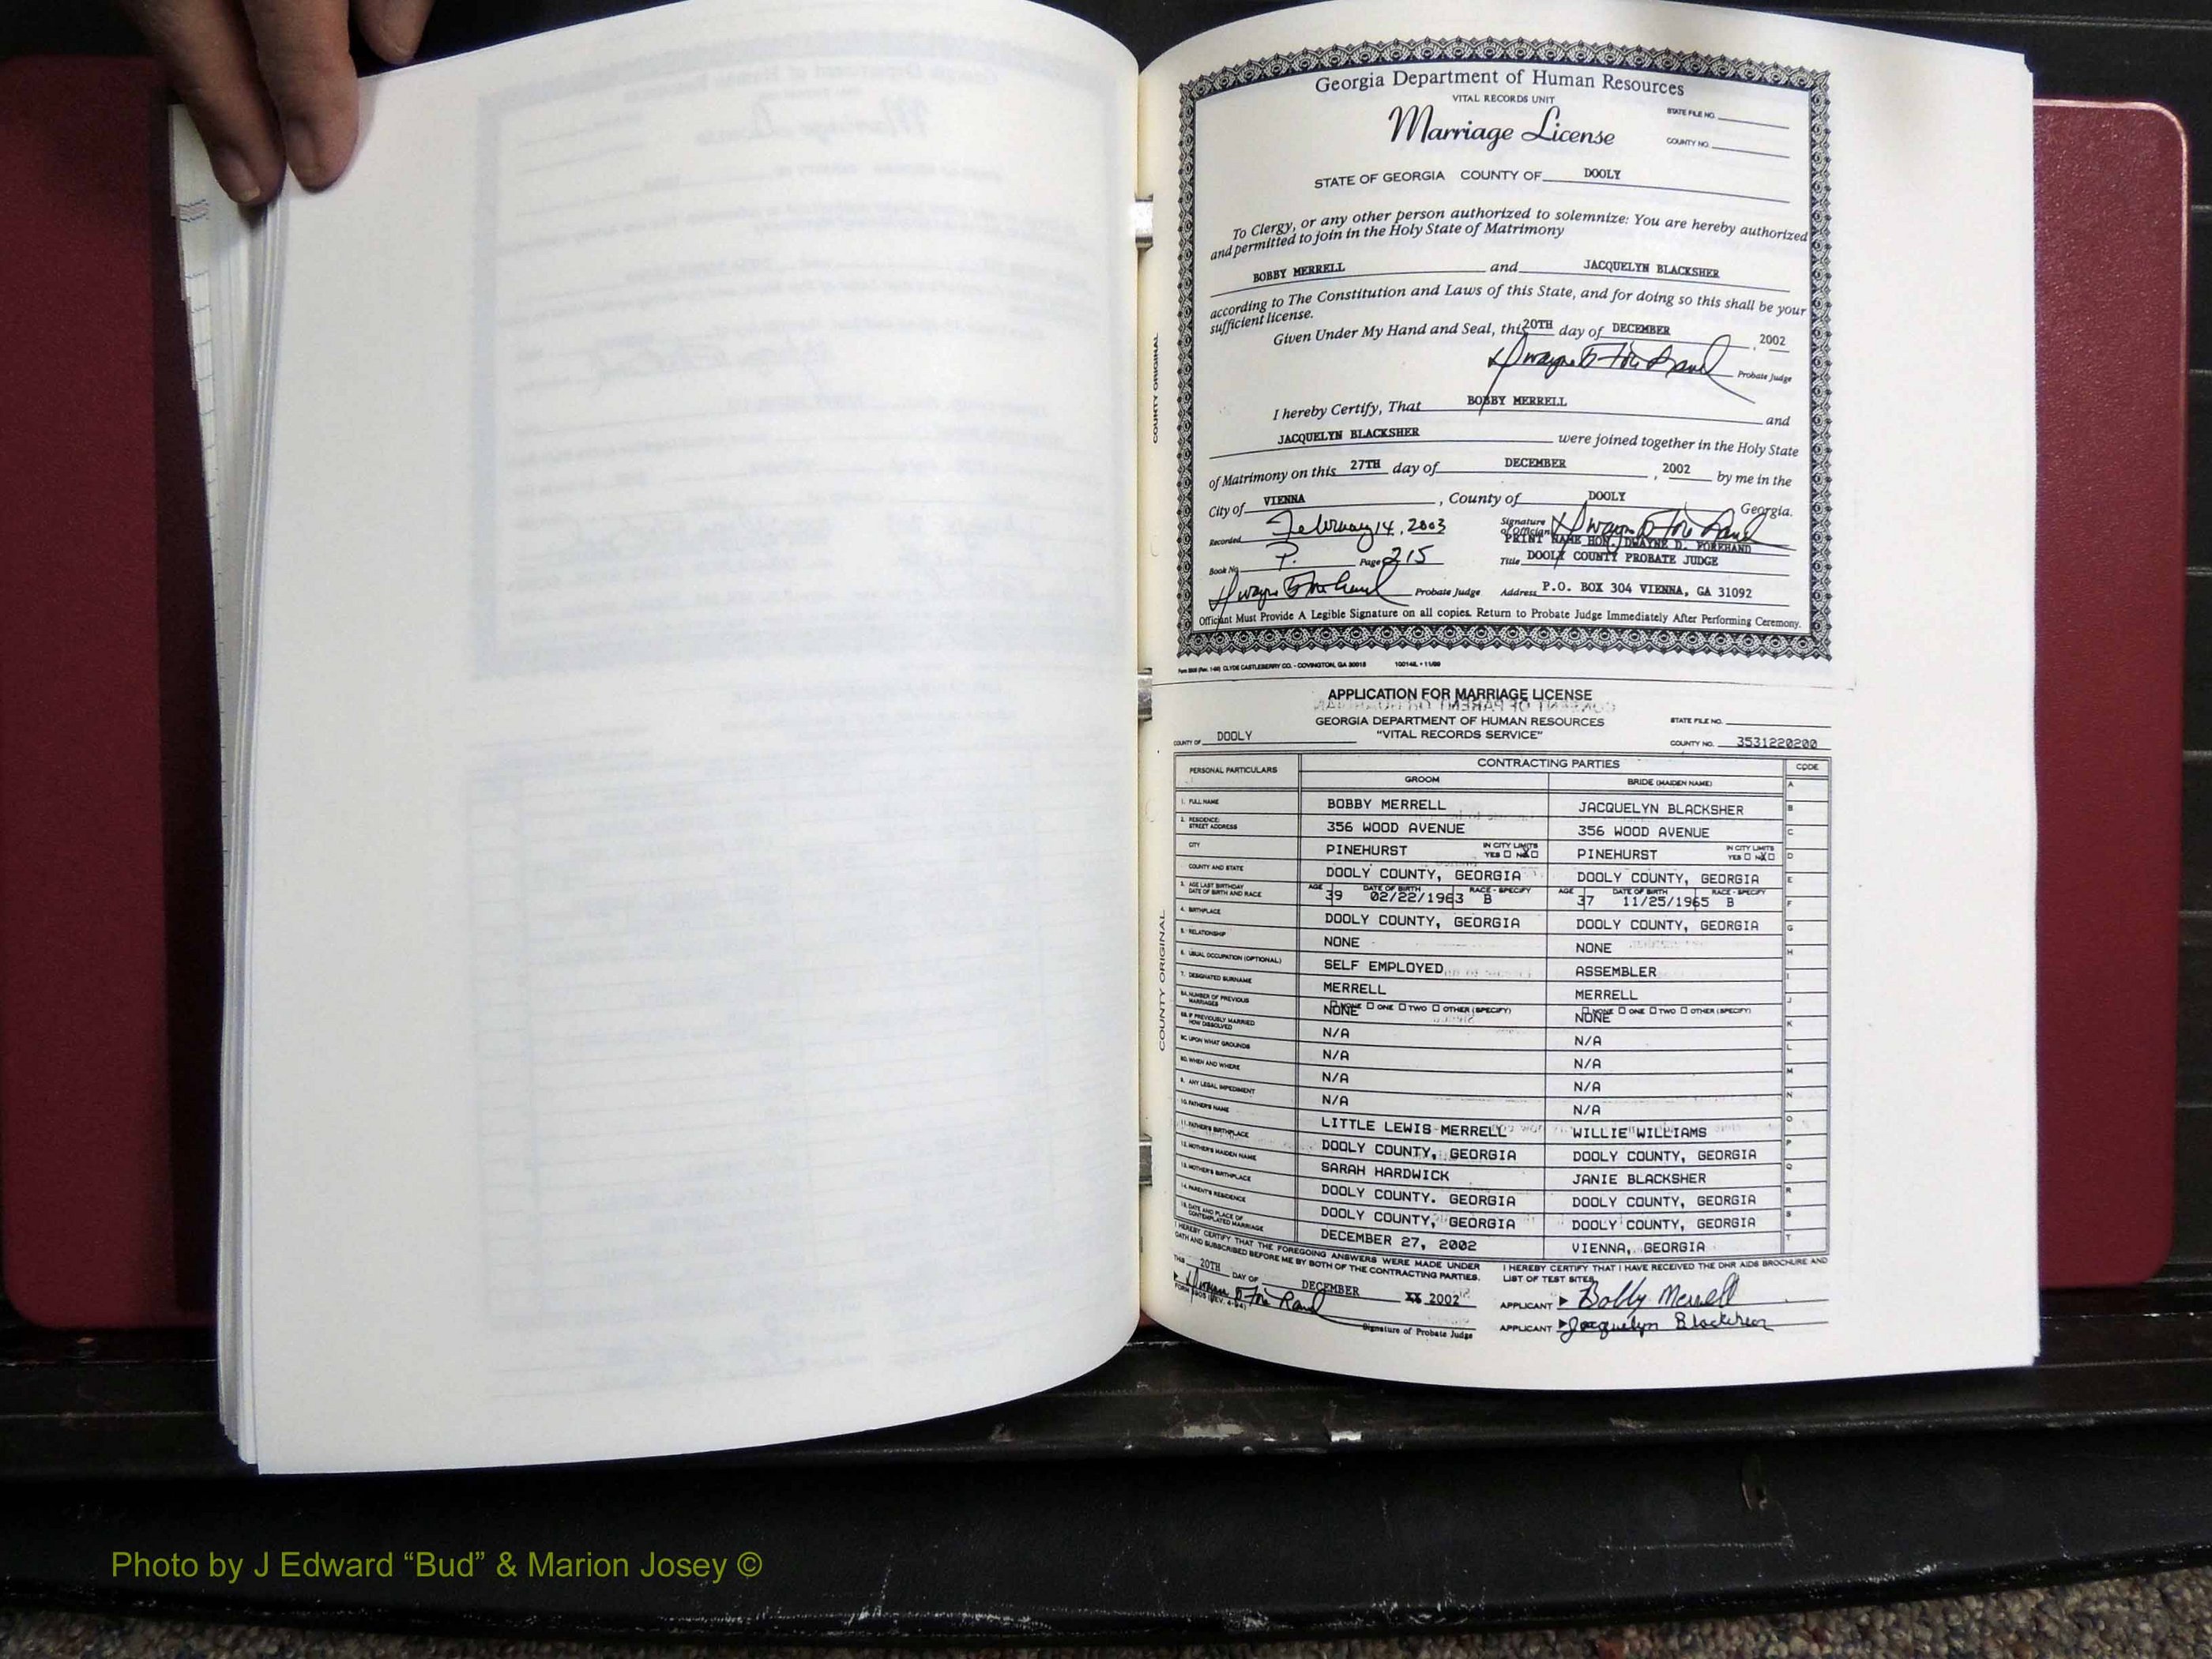 Georgia Department of Human Resources
VITAL RECORDS UNIT
STATE FILE NO.
Marriage License
COUNTY NO.
STATE OF GEORGIA COUNTY OF DOOLY
To Clergy, or any other person authorized to solemnize: You are hereby authorized
and permitted to join in the Holy State of Matrimony
BOBBY MERRELL and JACQUELYN BLACKSHER
according to The Constitution and Laws of this State, and for doing so this shall be your
sufficient license.
Given Under My Hand and Seal, this 20TH day of DECEMBER, 2002
Probate Judge
I hereby Certify, That BOBBY MERRELL and
JACQUELYN BLACKSHER were joined together in the Holy State
of Matrimony on this 27TH day of DECEMBER, 2002 by me in the
City of VIENNA, County of DOOLY Georgia.
Recorded February 14, 2003 Signature of Officiant
PRINT NAME HON. DWAYNE D. FOREHAND
Book No. P. Page 215 Title DOOLY COUNTY PROBATE JUDGE
Probate Judge Address P.O. BOX 304 VIENNA, GA 31092
Officiant Must Provide A Legible Signature on all copies. Return to Probate Judge Immediately After Performing Ceremony.
CLYDE CASTLEBERRY CO. - COVINGTON, GA 30015
COUNTY ORIGINAL
APPLICATION FOR MARRIAGE LICENSE
GEORGIA DEPARTMENT OF HUMAN RESOURCES STATE FILE NO.
COUNTY OF DOOLY "VITAL RECORDS SERVICE" COUNTY NO. 3531220200
PERSONAL PARTICULARS CONTRACTING PARTIES CODE
GROOM BRIDE (MAIDEN NAME) A
1. FULL NAME BOBBY MERRELL JACQUELYN BLACKSHER B
2. RESIDENCE: STREET ADDRESS 356 WOOD AVENUE 356 WOOD AVENUE C
CITY PINEHURST IN CITY LIMITS YES NO X PINEHURST IN CITY LIMITS YES NO X D
COUNTY AND STATE DOOLY COUNTY, GEORGIA DOOLY COUNTY, GEORGIA E
3. AGE LAST BIRTHDAY DATE OF BIRTH AND RACE AGE 39 DATE OF BIRTH 02/22/1963 RACE - SPECIFY B AGE 37 DATE OF BIRTH 11/25/1965 RACE - SPECIFY B F
4. BIRTHPLACE DOOLY COUNTY, GEORGIA DOOLY COUNTY, GEORGIA G
5. RELATIONSHIP NONE NONE H
6. USUAL OCCUPATION (OPTIONAL) SELF EMPLOYED ASSEMBLER I
7. DESIGNATED SURNAME MERRELL MERRELL J
8A. NUMBER OF PREVIOUS MARRIAGES NONE NONE ONE TWO OTHER (SPECIFY) NONE NONE ONE TWO OTHER (SPECIFY) K
8B. IF PREVIOUSLY MARRIED HOW DISSOLVED N/A N/A L
8C. UPON WHAT GROUNDS N/A N/A M
8D. WHEN AND WHERE N/A N/A N
9. ANY LEGAL IMPEDIMENT N/A N/A
10. FATHER'S NAME LITTLE LEWIS MERRELL WILLIE WILLIAMS O
11. FATHER'S BIRTHPLACE DOOLY COUNTY, GEORGIA DOOLY COUNTY, GEORGIA P
12. MOTHER'S MAIDEN NAME SARAH HARDWICK JANIE BLACKSHER Q
13. MOTHER'S BIRTHPLACE DOOLY COUNTY. GEORGIA DOOLY COUNTY, GEORGIA R
14. PARENT'S RESIDENCE DOOLY COUNTY, GEORGIA DOOLY COUNTY, GEORGIA S
15. DATE AND PLACE OF CONTEMPLATED MARRIAGE DECEMBER 27, 2002 VIENNA, GEORGIA T
I HEREBY CERTIFY THAT THE FOREGOING ANSWERS WERE MADE UNDER
OATH AND SUBSCRIBED BEFORE ME BY BOTH OF THE CONTRACTING PARTIES.
THIS 20TH DAY OF DECEMBER XX 2002
Signature of Probate Judge
I HEREBY CERTIFY THAT I HAVE RECEIVED THE DHR AIDS BROCHURE AND
LIST OF TEST SITES
APPLICANT Bobby Merrell
APPLICANT Jacquelyn Blacksher
COUNTY ORIGINAL
Photo by J Edward “Bud” & Marion Josey ©